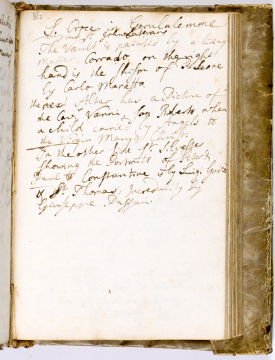 S. Croce in Gerusalemme
The Vault is painted by a living
Master Corrado on the right
hand is the of St
by Carlo Maratta
the next Altar has a Picture of
the Cav. Vanni, when
a child carried by Angels to
the Virgin Mary & Christ.
In the other Side St. Silvester
Showing the Portraits of St Peter &
Paul to Constantine is by Luigi
& St. Thomas's Incredulity by
Giuseppe Passari